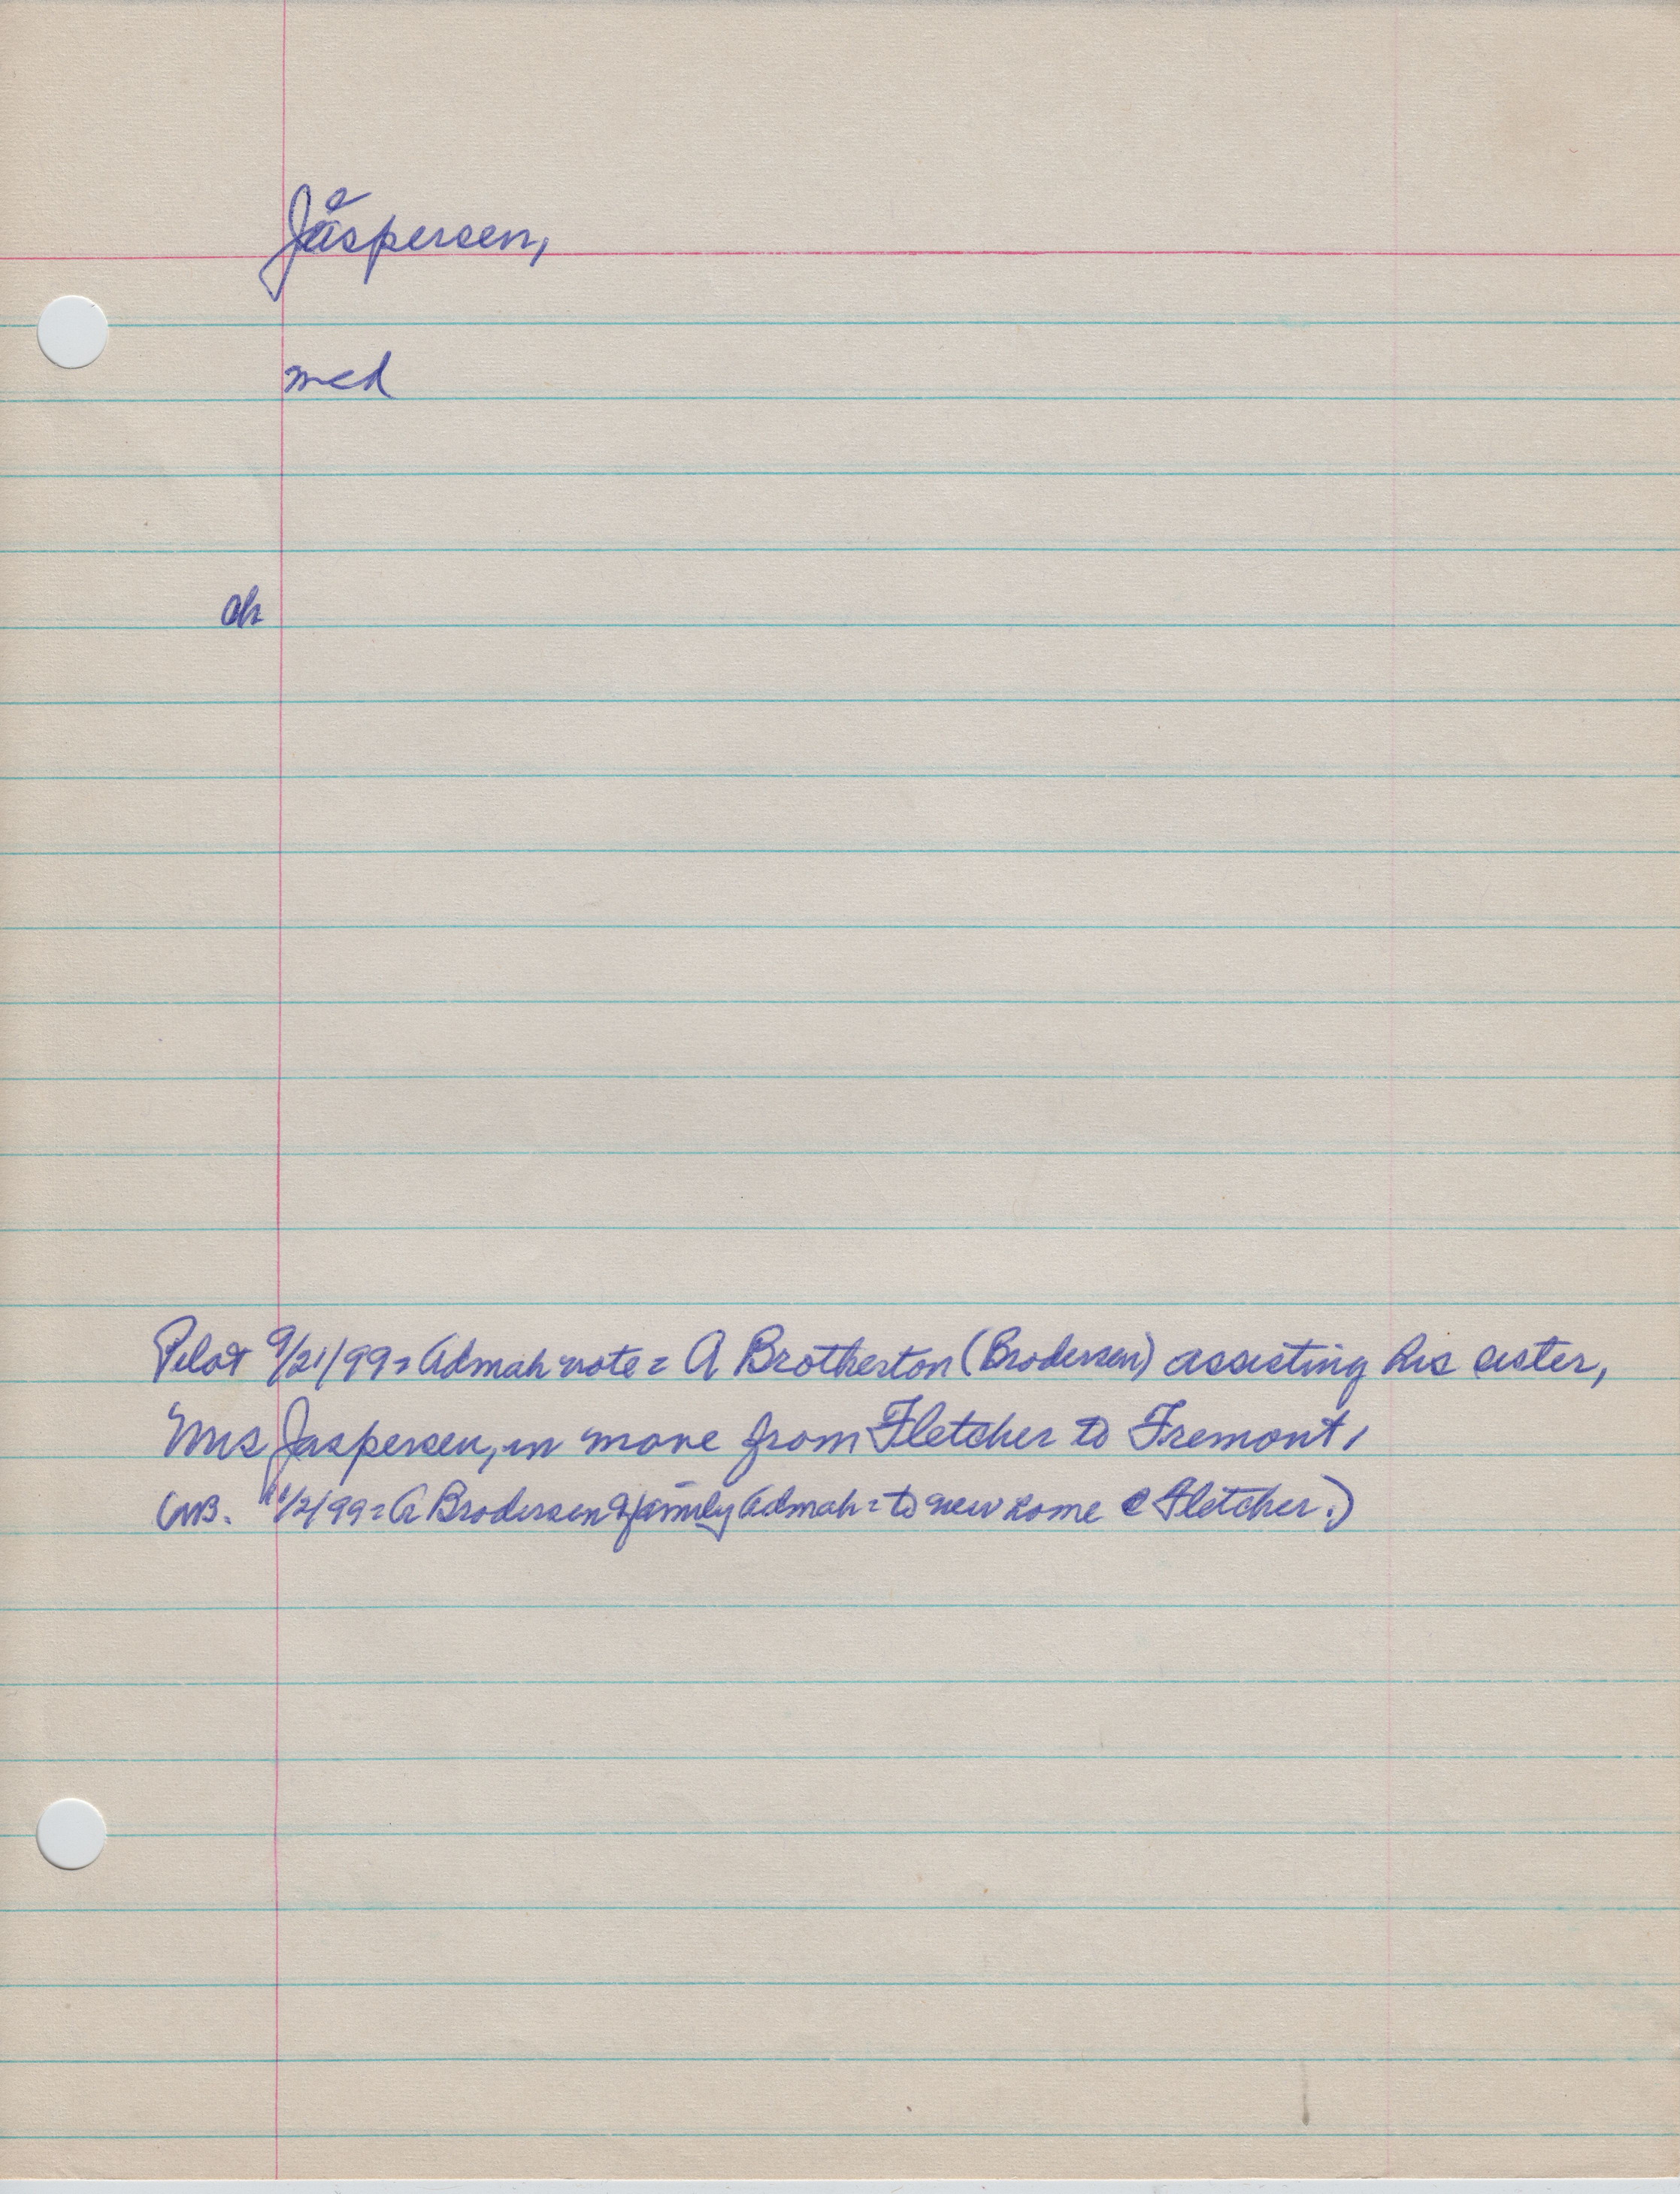 Jaspersen,
med
ch
Pilot 9/21/99 = Admah note = A Brotherton (Brodersen) assisting his sister,
Mrs Jaspersen, in move from Fletcher to Fremont,
(NB. 11/2/99 = A Brodersen & family Admah = to new home @ Fletcher.)